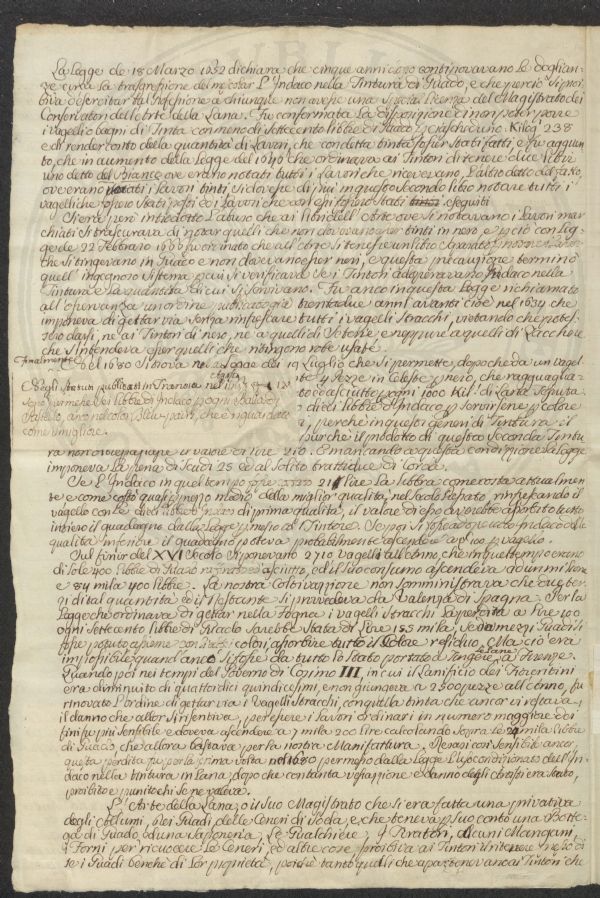 La Legge de 18 Marzo 1652 dichiara che cinque anni dopo continovavano le doglian-
ze circa la trasgressione del mescolar l'Indaco nella Tintura di Guado, e che perciò si proi-
biva d'esercitar tal Professione a chiunque non avesse una Licenza del Magistrato dei
Conservatori dell'Arte della Lana. Fu confermata la disposizione di non poter porre
i vagelli o bagni di Tinta con meno di Settecento libbre di Guado per ciascheduno. Kilog 238
e di render conto della quantità di Lavori, che con detta tinta fossero Stati fatti e fu aggiun
to, che in aumento della Legge del 1640 che ordinava ai Tintori di tenere due libri
uno detto del Bianco ove erano notati tutti i Lavori che ricevevano, l'altro detto del fatto,
ove erano i Lavori tinti si dovesse di più in questo Secondo libro notare tutti i
vagelli che fossero Stati posti ed i Lavori che con essi fossero Stati eseguiti
Si era però introdotto l'abuso che ai libri dell'Arte ove si notavano i Lavori mar
chiati si trascurava di notar quelli che non dovevano esser tinti in nero e perciò con leg-
ge de 22 Febbraro fu ordinato che all'Arte si tenesse un libro Separato
che si tingevano in Guado e non dovevano esser neri, e questa precauzione terminò
quell'ingegnoso sistema per cui si verificava se i Tintori adoperavano Indaco nella
Tintura e la quantità di cui si servivano. Fu anco in questa Legge richiamato
all'osservanza un ordine pubblicato già trentadue anni avanti cioè nel 1634 che
imponeva di gettar via senza rinfrescare tutti i vagelli Stracchi, vietando che potes-
sero darsi, ne ai Tintori di nero, ne a quelli di Seta che e neppure a quelli di Zacchere
che s'intendeva esser quelli che ritingono robe usate.
Finalmente
del 1680 Si trova nel bando dei 19 Luglio che si permette, dopo che da un vagel-
te 4 Pezze in Celeste per nero, che ragguaglia-
to ed asciutto ogni 1000 Kil. di Lana Saputa
di dieci libbre d'Indaco per servirsene per colore
perche in questi generi di Tintura il
purché il prodotto di questa Seconda Tintu
E dagli Statuti pubblicati in Francia nel
Sono permesse Sei libbre di Indaco per ogni Balla di
Pastello, ancor nel color Bleu-pairs, che riguardata
come migliore.
ra non oltrepassasse il valore di lire 210. E mancando a questa condizione la Legge
imponeva la pena di Scudi 25 ed al Solito tratti due di Corda.
Se l'Indaco in quel tempo fosse costato 21 Lire la Libbra come costa attualmen
te e come costò quasi per mezzo della miglior qualità, nel Secolo passato, rinfrescando il
vagello con le dieci libbre d'Indaco di prima qualità, il valore di esso avrebbe assorbito tutto
intiero il guadagno dalla Legge permesso al Tintore. Se poi si fosse adoperato Indaco della
qualità inferiore il guadagno poteva probabilmente ascendere a per vagello.
Sul finir del XVI Secolo si ponevano 2710 vagelli all'anno, che in quel tempo erano
di Sole 400 libbre di Guado ed asciutto, ed il suo consumo ascendeva ad un milione
e 84 mila 400 libbre. La nostra Coltivazione non somministrava che due ter-
zi di tal quantità ed il restante si provvedeva da Valenza di Spagna. Per la
Legge che ordinava di gettar nella fogna i vagelli Stracchi la perdita a lire 100
ogni Settecento libbre di Guado Sarebbe Stata di Lire 155 mila, Se da mezzi Guadi si
fosse potuto assorbire colori, assorbire tutto il colore residuo, Ma ciò era
impossibile quand anco si fosse da tutto lo Stato portato a tingere le Lane a Firenze.
Quando poi nei tempi del Governo di Cosimo III, in cui il Lanificio dei Fiorentini
era diminuito di quattordici quindicesimi, e non giungeva a 2500 pezze all'Anno, fu
rinovato l'ordine di gettar via i Vagelli Stracchi, con quella tinta che ancor vi restava,
il danno che allor si risentiva, per essere i lavori ordinari in numero maggiore dei
fini fu più Sensibile e doveva ascendere a 7 mila 200 lire calcolando Sopra le 24 mila libbre
di Guado, che allora bastava per la nostra Manifattura. Resasi così Sensibile ancor
questa perdita fu per la prima volta nel 1680 permesso dalla Legge l'uso condizionato dell'In-
daco nella tintura in Lana, dopo che con tanta vessazione e danno degli Artisti era stato,
proibito e puniti chi se ne valeva.
L'Arte della Lana, o il suo Magistrato che si era fatta una privativa
degli Oblumi, dei Guadi delle Ceneri di Soda, e che teneva per suo conto una Botte-
ga di Guado, ed una Saponeria, Le Gualchiere, i Tiratori, alcuni Mangani,
i Forni per ricuocere le Ceneri, ed altre cose, proibiva ai Tintori il ritenere
te i Guadi benché di lor proprietà, poiché tanto quelli che appartenevano ai Tintori che